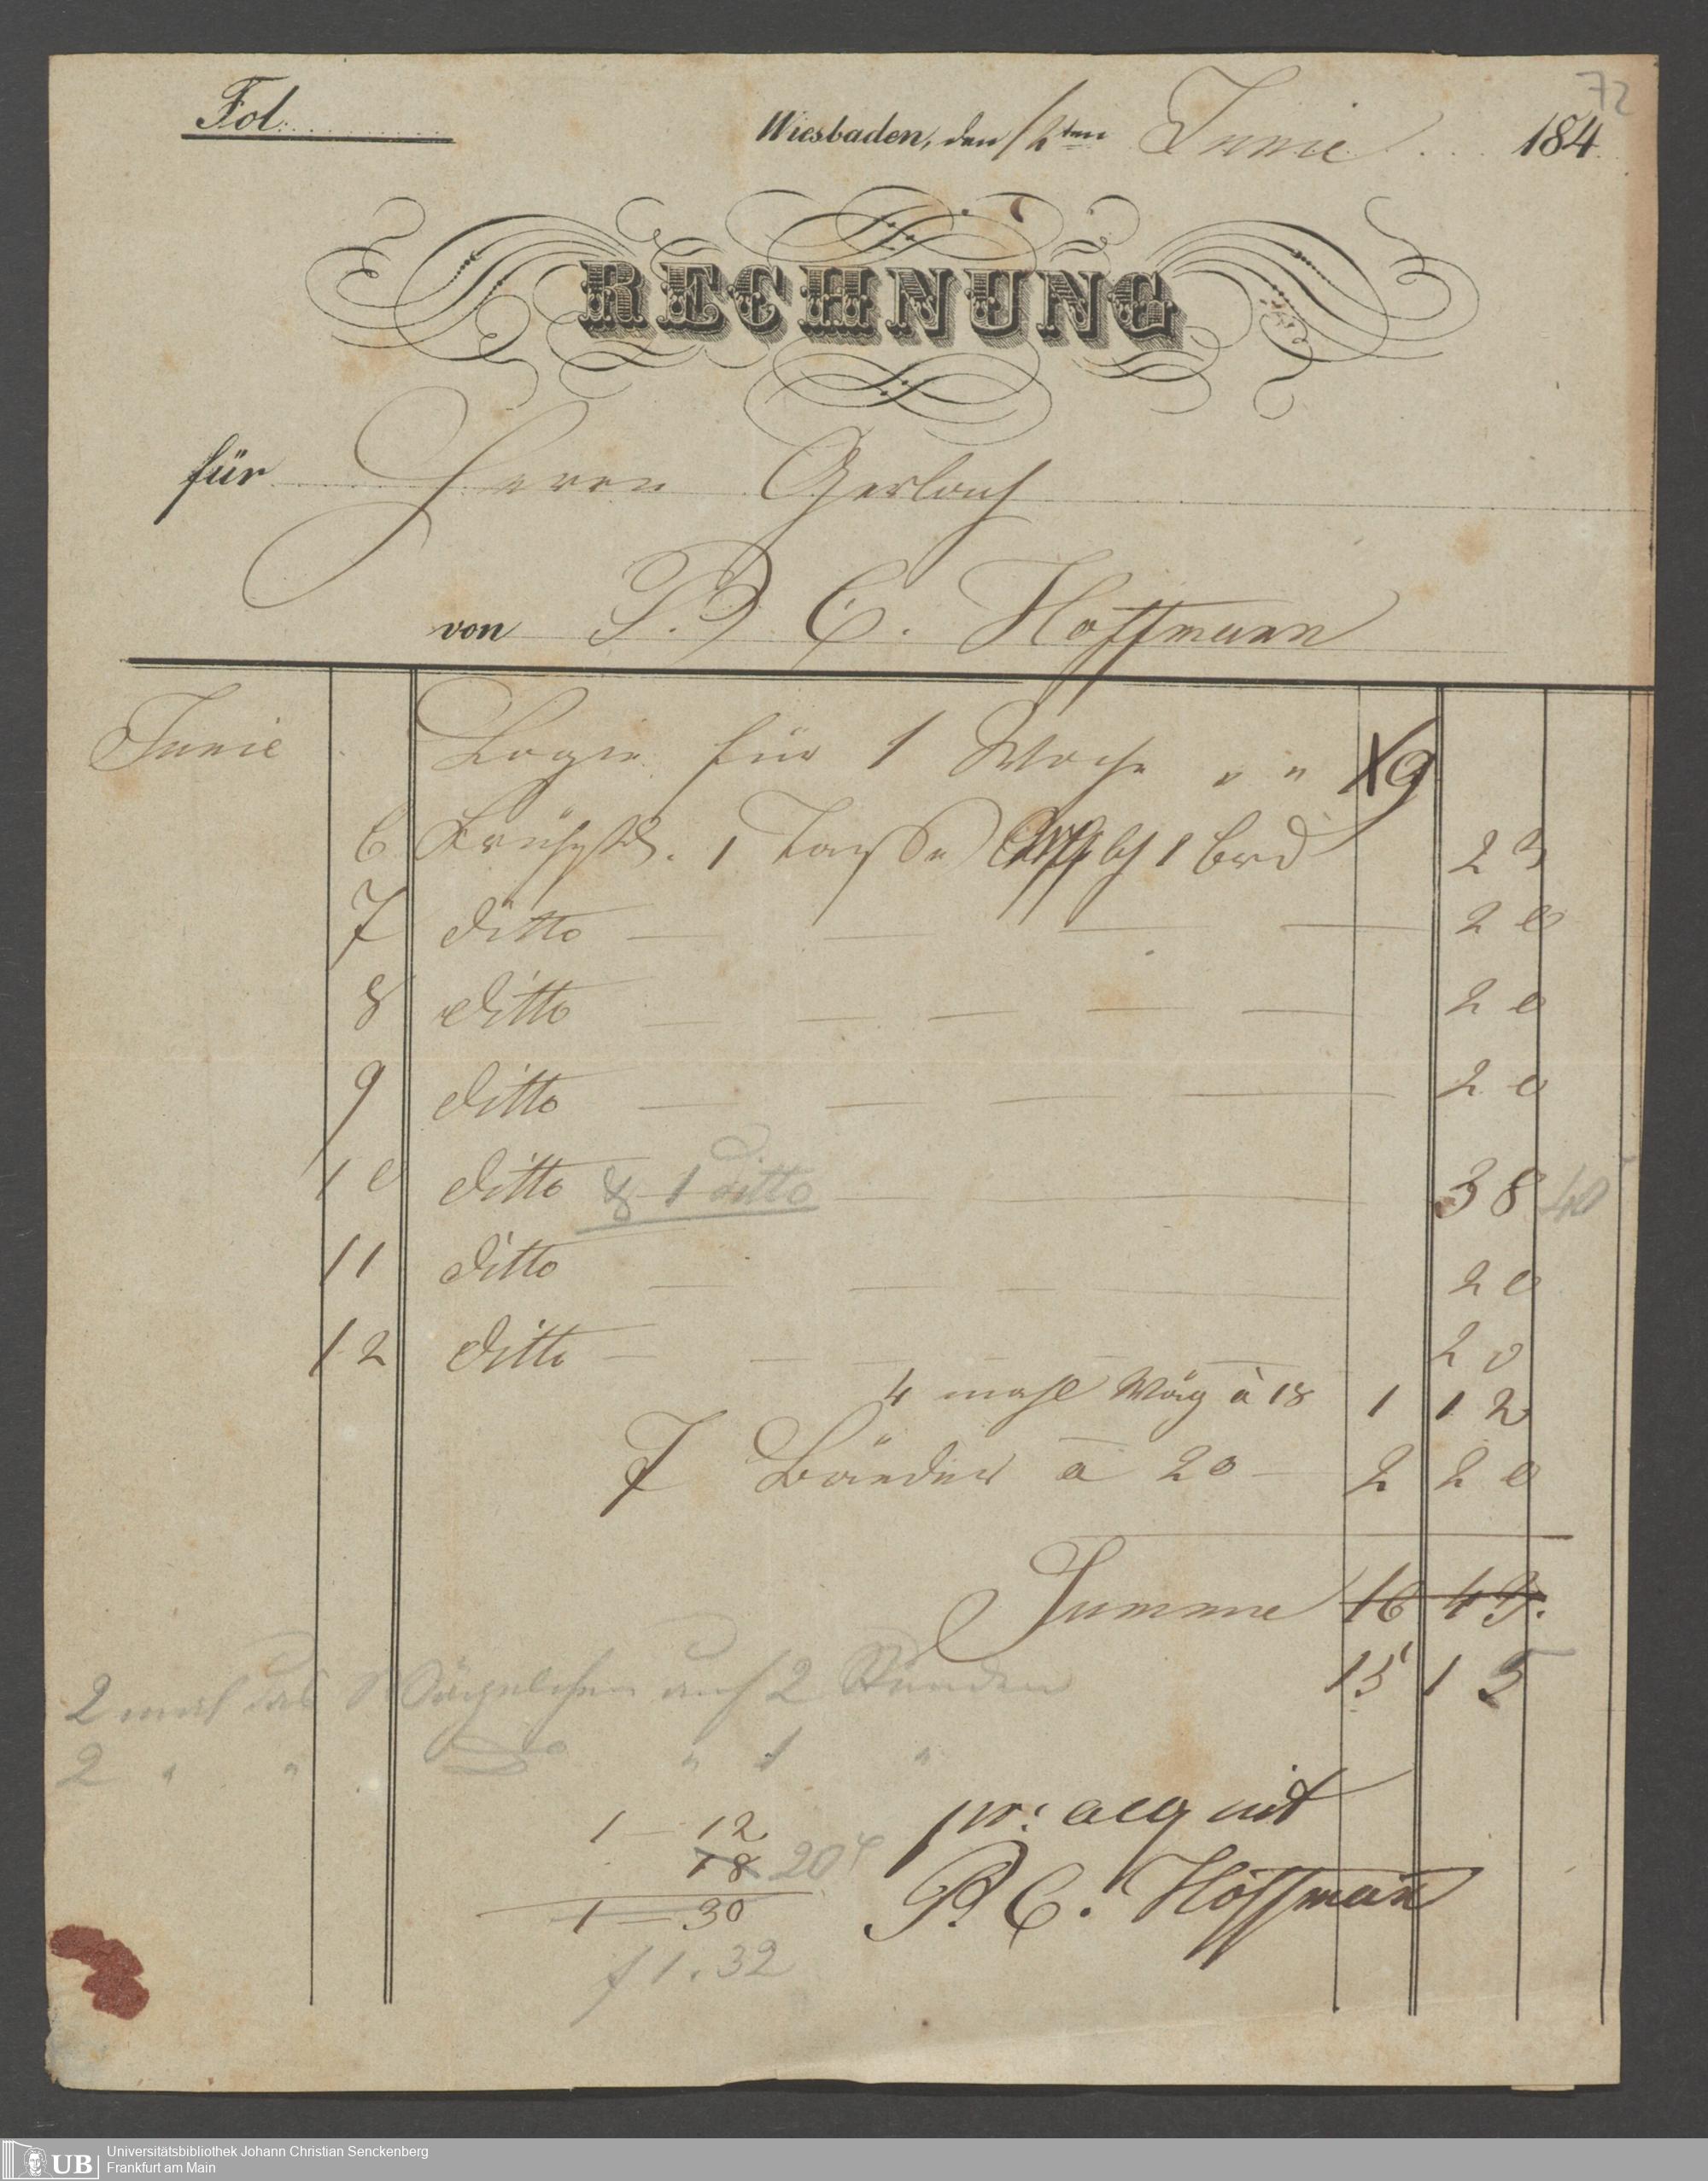 72
Fol.
Wiesbaden, den 12ten Junie 184
RECHNUNG
für Herrn Gerlach
von P. C. Hoffmann
Junie Logie für 1 Woche " " 9
6 Frühst. 1 Tasse 1 Brd 23
7 ditto 20
8 ditto 20
9 ditto 20
10 ditto & 1 ditto 38 40
11 ditto 20
12 ditto 20
4 mahl Wäg à 18 1 12
7 Bäeder à 20 2 20
Summe 16 49.
15 13
2 mal das Wägelchen auf 2 Stunden
2 " " do " 1 "
1 — 12
18 20
1 — 30
f 1.32
pr: acquit
P. C. Hoffmann
UB Universitätsbibliothek Johann Christian Senckenberg
Frankfurt am Main